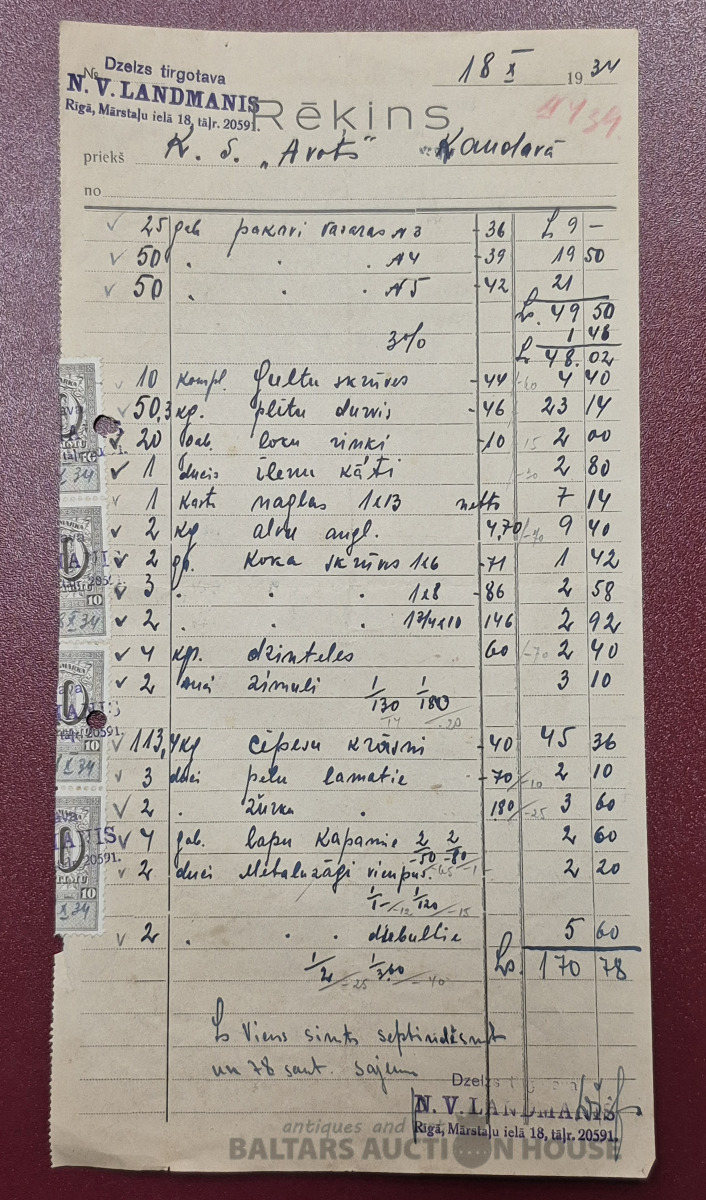 Dzelzs tirgotava
N. V. LANDMANIS
Rīgā, Mārstaļu ielā 18, tāļr. 20591.
№
18 X 1934
Rēķins
priekš K. S. "Avots" Kandavā
no
25 gab pakavi vasaras N3 -36 L 9 -
50 " " N4 -39 19 50
50 " " N5 -42 21
Ls. 49 50
3% 1 48
L 48.02
10 kompl. gultu skrūves -44 4 40
50,3 kg. plītu durvis -46 23 14
20 gab. loku rinķi -10 15 2 00
1 ducis īlenu kāti 2 80
1 kaste naglas 1x13 netto 7 14
2 kg alva angl. 4,70 9 40
2 gr. koka skrūves 1x6 -71 1 42
3 " " 1x8 -86 2 58
2 " " 1 3/4x10 146 2 92
4 kgr. dzinteles 60 /-70 2 40
2 duci zīmuļi 1/130 1/180 3 10
113,4 kg cepešu krāsni -40 45 36
3 duci peļu lamatie -70 /-10 2 10
2 " žurku " 180 /-25 3 60
4 gab. lapu kapamie 2/-50 2/-80 2 60
2 duci Metalzāģi vienpus. 2 20
1/1- /-12 1/120 /-15
2 " " " dubultie 5 60
1/2 /-25 1/3.60 /-40 Ls. 170 78
Ls Viens simts septiņdesmit
un 78 sant. saņemu
Dzelzs tirgotava
N. V. LANDMANIS
Rīgā, Mārstaļu ielā 18, tāļr. 20591.
antiques and art
BALTARS AUCTION HOUSE